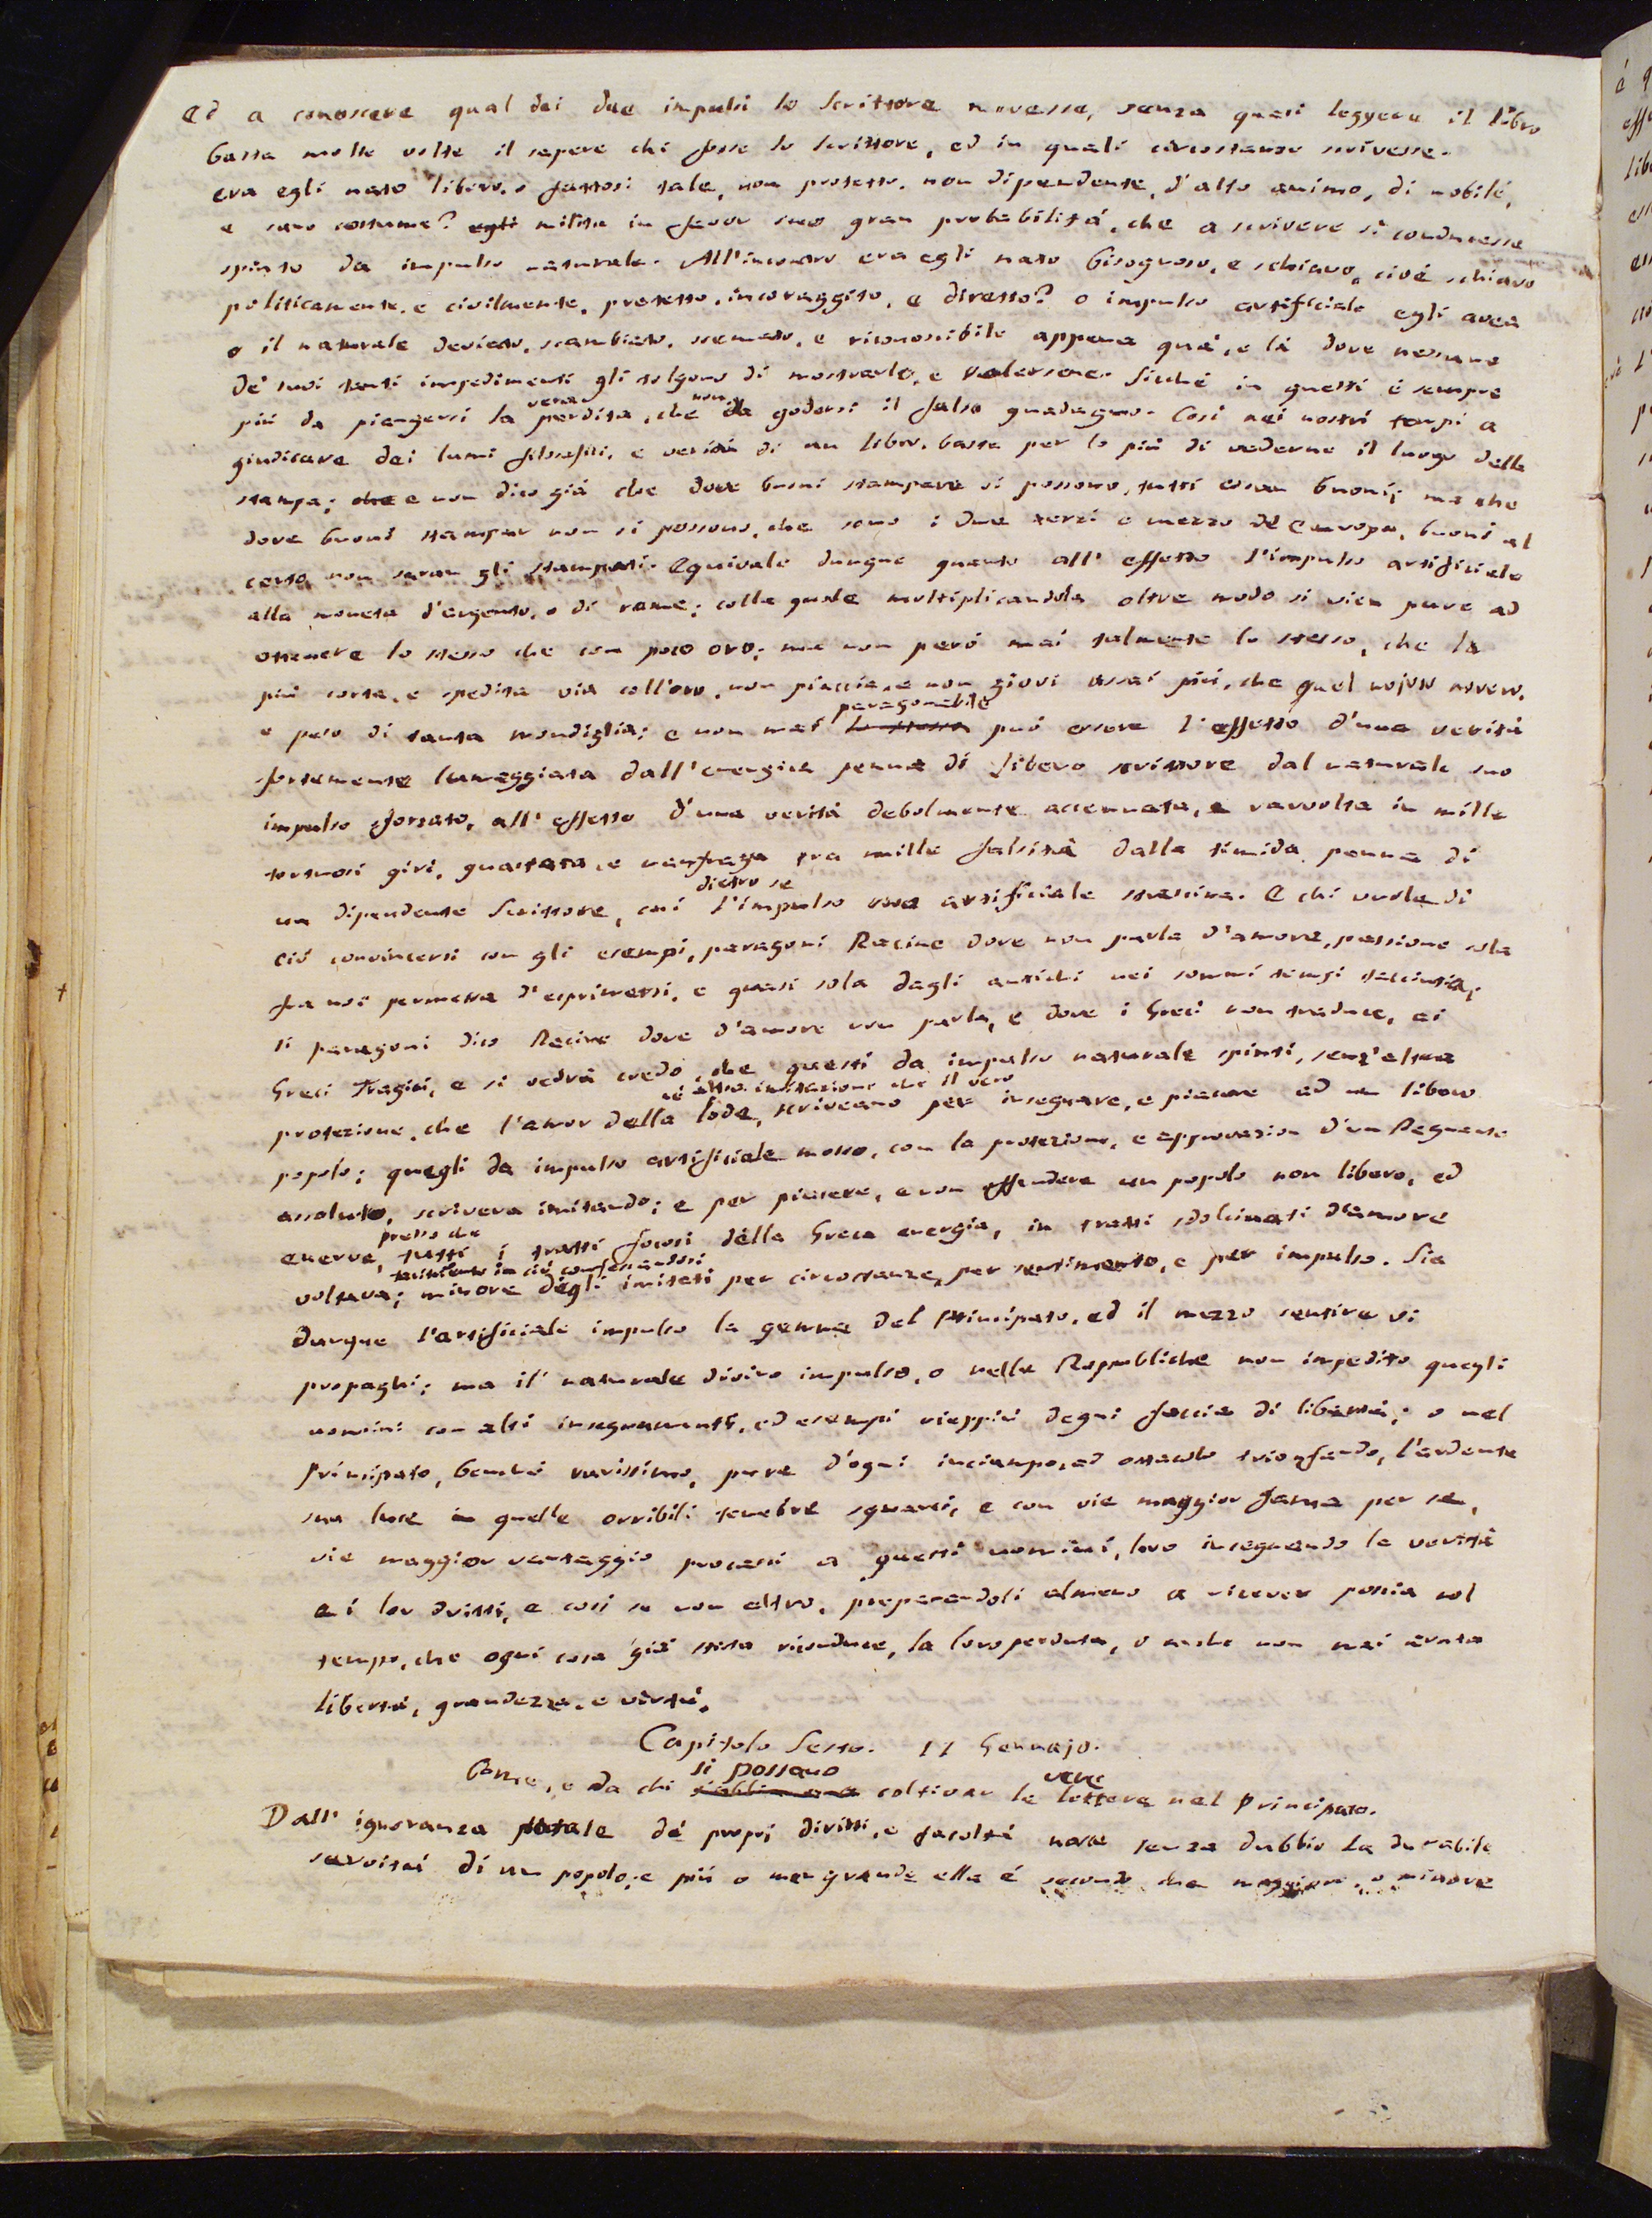 ed a conoscere qual dei due impulsi lo Scrittore movesse, senza quasi leggere il libro
basta molte volte il sapere chi fosse lo scrittore, ed in quali circostanze scrivesse.
era egli nato libero, o fattosi tale, non protetto, non dipendente, d'alto animo, di nobile,
e sano costume? egli milita in favor suo gran probabilitá, che a scrivere si conducesse
spinto da impulso naturale. All'incontro era egli nato bisognoso, e schiavo, cioé schiavo
politicamente, e civilmente, protetto, incoraggito, e diretto? o impulso artificiale egli avea
o il naturale deviato, scambiato, scemato, e riconoscibile appena quá, e lá dove nessuno
de' suoi tanti impedimenti gli tolgono di mostrarlo, e valersene. Sicché in questi é sempre
vera non
piú da piangersi la perdita, che da godersi il falso guadagno. Cosi nei nostri tempi a
giudicare dei lumi filosofici, e veritá di un libro, basta per lo piú di vederne il luogo della
stampa; che e non dico giá che dove buoni stampare si possono, tutti essan buoni; ma che
dove buoni stampar non si possono, che sono i due terzi e mezzo de Europa, buoni al
certo non saran gli stampati. Equivale dunque quanto all' effetto l'impulso artificiale
alla moneta d'argento, o di rame; colla quale multiplicandola oltre modo si vien pure ad
ottenere lo stesso che con poco oro; ma non peró mai talmente lo stesso, che la
piú corta, e spedita via coll'oro, non piaccia, e non giovi assai piú, che quel nojoso novero,
paragonabile
e peso di tanta mondiglia; e non mai lo stesso puó essere l'effetto d'una veritá
fortemente lumeggiata dall'energica penna di libero scrittore dal naturale suo
impulso sforzato, all' effetto d'una veritá debolmente accennata, e ravvolta in mille
tortuosi giri, guastata, e naufraga tra mille falsitá dalla timida penna di
dietro se
un dipendente Scrittore, cui l'impulso artificiale strascina. E chi vuole di
ció convincersi con gli esempi, paragoni Racine dove non parla d'amore, passione sola
fra noi permessa d'esprimersi, e quasi sola dagli antichi nei sommi tempi taciuta,
si paragoni dico Racine dove d'amore non parla, e dove i Greci non traduce, ai
Greci Tragici, e si vedrá credo, che questi da impulso naturale spinti, senz'altra
né altra imitazione che il vero
protezione, che l'amor della lode, scriveano per insegnare, e piacere ad un libero
popolo; quegli da impulso artificiale mosso, con la protezione, e approvazion d'un Regnante
assoluto, scriveva imitando; e per piacere, e non offendere un popolo non libero, ed
presso che
enerve, tutti i tratti focosi della Greca energia, in tratti sdolcinati d'amore
tacitamente in ció confessandosi
voltava; minore degli imitati per circostanze, per sentimento, e per impulso. Sia
dunque l'artificiale impulso la gemma del Principato, ed il mezzo sentire vi
propaghi; ma il naturale divino impulso, o nelle Repubbliche non impedito quegli
uomini con alti insegnamenti, ed esempi vieppiú degni faccia di libertá; o nel
Principato, benché rarissimo, pure d'ogni inciampo, ed ostacolo trionfando, l'ardente
sua luce in quelle orribili tenebre squarci, e con vie maggior fama per se,
vie maggior vantaggio procacci a questi uomini, loro insegnando la veritá
e i lor dritti, e cosi se non altro, preparandoli almeno a ricever poscia col
tempo, che ogni cosa giá stata riconduce, la loro perduta, o anche non mai avuta
libertá, grandezza, e virtú.
Capitolo Sesto. 11 Gennajo.
si possano vere
Come, e da chi coltivar le lettere nel Principato.
Dall' ignoranza totale de' propri diritti, e facoltá nasce senza dubbio la durabile
servitú di un popolo; e piú o men grande ella é secondo che maggiore, o minore